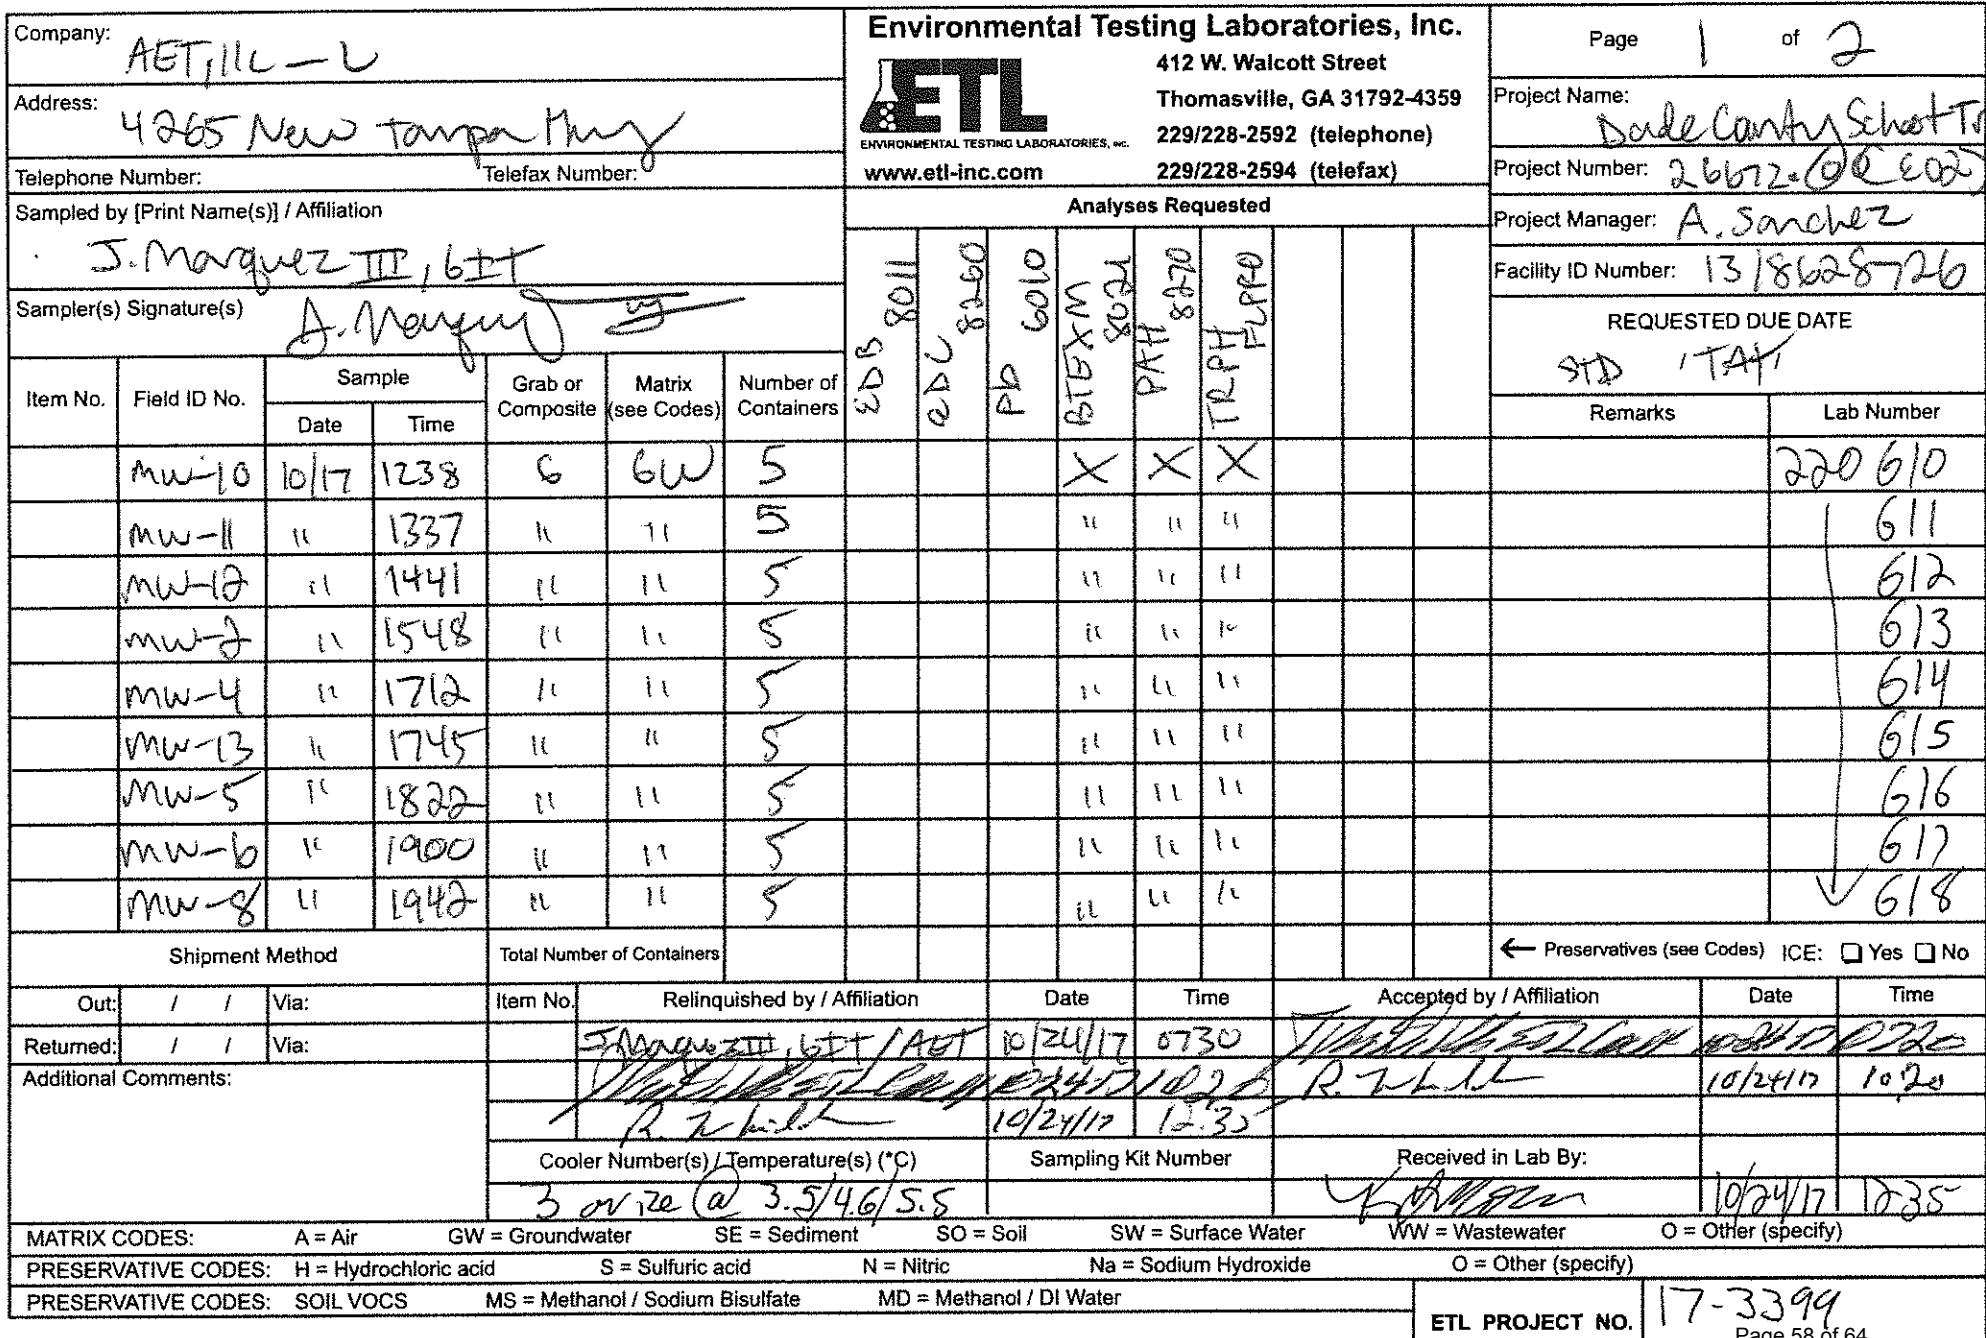 Company: AET, LLC - L
Address: 4265 New Tampa Hwy
Telephone Number: Telefax Number:
Sampled by [Print Name(s)] / Affiliation
J. Marquez III, GIT
Sampler(s) Signature(s) J. Marquez
Environmental Testing Laboratories, Inc.
ETL
ENVIRONMENTAL TESTING LABORATORIES, INC.
412 W. Walcott Street
Thomasville, GA 31792-4359
229/228-2592 (telephone)
www.etl-inc.com 229/228-2594 (telefax)
Page 1 of 2
Project Name: Dade County School Tr
Project Number: 26672.
Project Manager: A. Sanchez
Facility ID Number: 13/8628726
REQUESTED DUE DATE
STD TAT
Analyses Requested
EDB 8011
EDC 8260
Pb 6010
BTEXM 8021
PAH 8270
TRPH FLPRO
Item No. Field ID No. Sample Date Time Grab or Composite Matrix (see Codes) Number of Containers Remarks Lab Number
MW-10 10/17 1238 G GW 5 X X X 220 610
MW-11 " 1337 " " 5 " " " 611
MW-12 " 1441 " " 5 " " " 612
MW-2 " 1548 " " 5 " " " 613
MW-4 " 1712 " " 5 " " " 614
MW-13 " 1745 " " 5 " " " 615
MW-5 " 1822 " " 5 " " " 616
MW-6 " 1900 " " 5 " " " 617
MW-8 " 1942 " " 5 " " " 618
Shipment Method Total Number of Containers ← Preservatives (see Codes) ICE: ☐ Yes ☐ No
Out: / / Via: Item No. Relinquished by / Affiliation Date Time Accepted by / Affiliation Date Time
Returned: / / Via: J. Marquez III, GIT / AET 10/24/17 0730
Additional Comments: 10/24/17 1020
10/24/17 12:35
Cooler Number(s) / Temperature(s) (°C) Sampling Kit Number Received in Lab By:
3 on ice @ 3.5/4.6/5.5 10/24/17 1235
MATRIX CODES: A = Air GW = Groundwater SE = Sediment SO = Soil SW = Surface Water WW = Wastewater O = Other (specify)
PRESERVATIVE CODES: H = Hydrochloric acid S = Sulfuric acid N = Nitric Na = Sodium Hydroxide O = Other (specify)
PRESERVATIVE CODES: SOIL VOCS MS = Methanol / Sodium Bisulfate MD = Methanol / DI Water
ETL PROJECT NO. 17-3399
Page 58 of 64